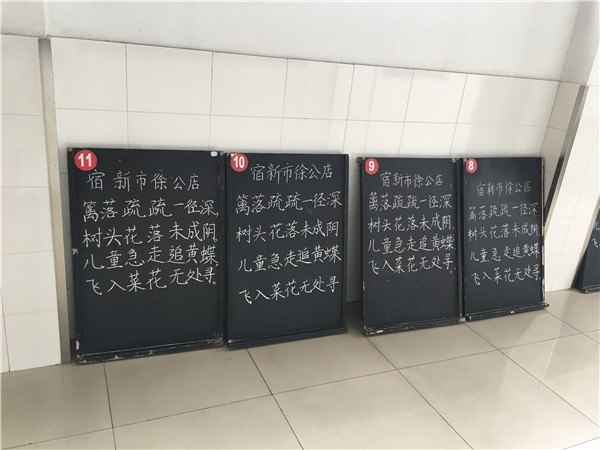 11
宿新市徐公店
篱落疏疏一径深
树头花落未成阴
儿童急走追黄蝶
飞入菜花无处寻
10
宿新市徐公店
篱落疏疏一径深
树头花落未成阴
儿童急走追黄蝶
飞入菜花无处寻
9
宿新市徐公店
篱落疏疏一径深
树头花落未成阴
儿童急走追黄蝶
飞入菜花无处寻.
8
宿新市徐公店
篱落疏疏一径深
树头花落未成阴
儿童急走追黄蝶
飞入菜花无处寻